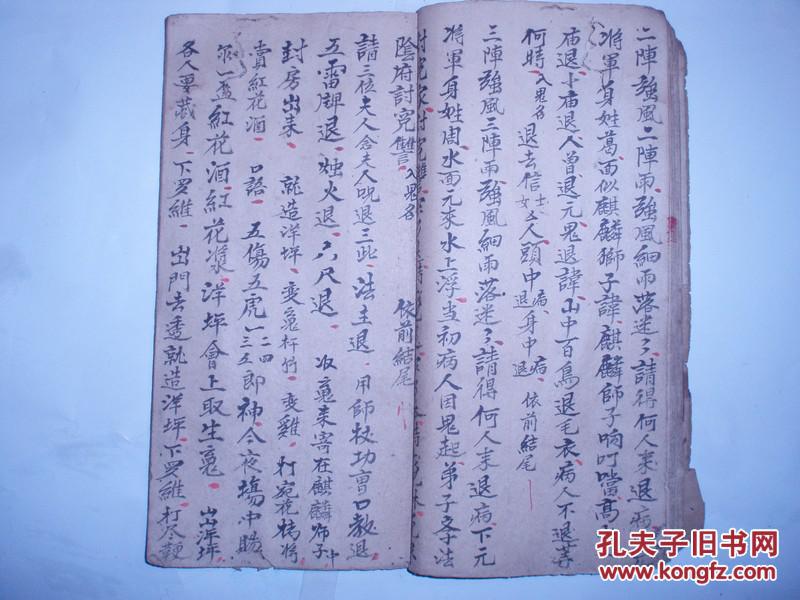 二陣強風二陣雨強風細雨落迷々請得何人来退病
将軍身姓葛面似麒麟獅子諱麒麟師子响叮噹高
庙退小庙退人曽退元鬼退諱山中百鳥退毛衣病人不退
何時入鬼名退去信士女人頭中病退身中病退依前結尾
三陣強風三陣雨強風細雨落迷々請得何人来退病下元
将軍身姓周水面元來水上浮当初病人因鬼起弟子字法
陰府討冤讐入鬼名 依前結尾
請三位夫人念夫人呪退三此法主退用師杖功曹口教退
五雷牌退烛火退六尺退 收竜来寄在麒麟师子中
封房出来 就造洋坪变竜杆竹变雞打
賣紅花酒 口語 五傷五虎一二三四五郎神今夜塲中
一盃紅花酒紅花漿洋坪會上取生竜 出洋坪
各人要藏身下罗維 出門去透就造洋坪下罗維打
孔夫子旧书网
www.kongfz.com